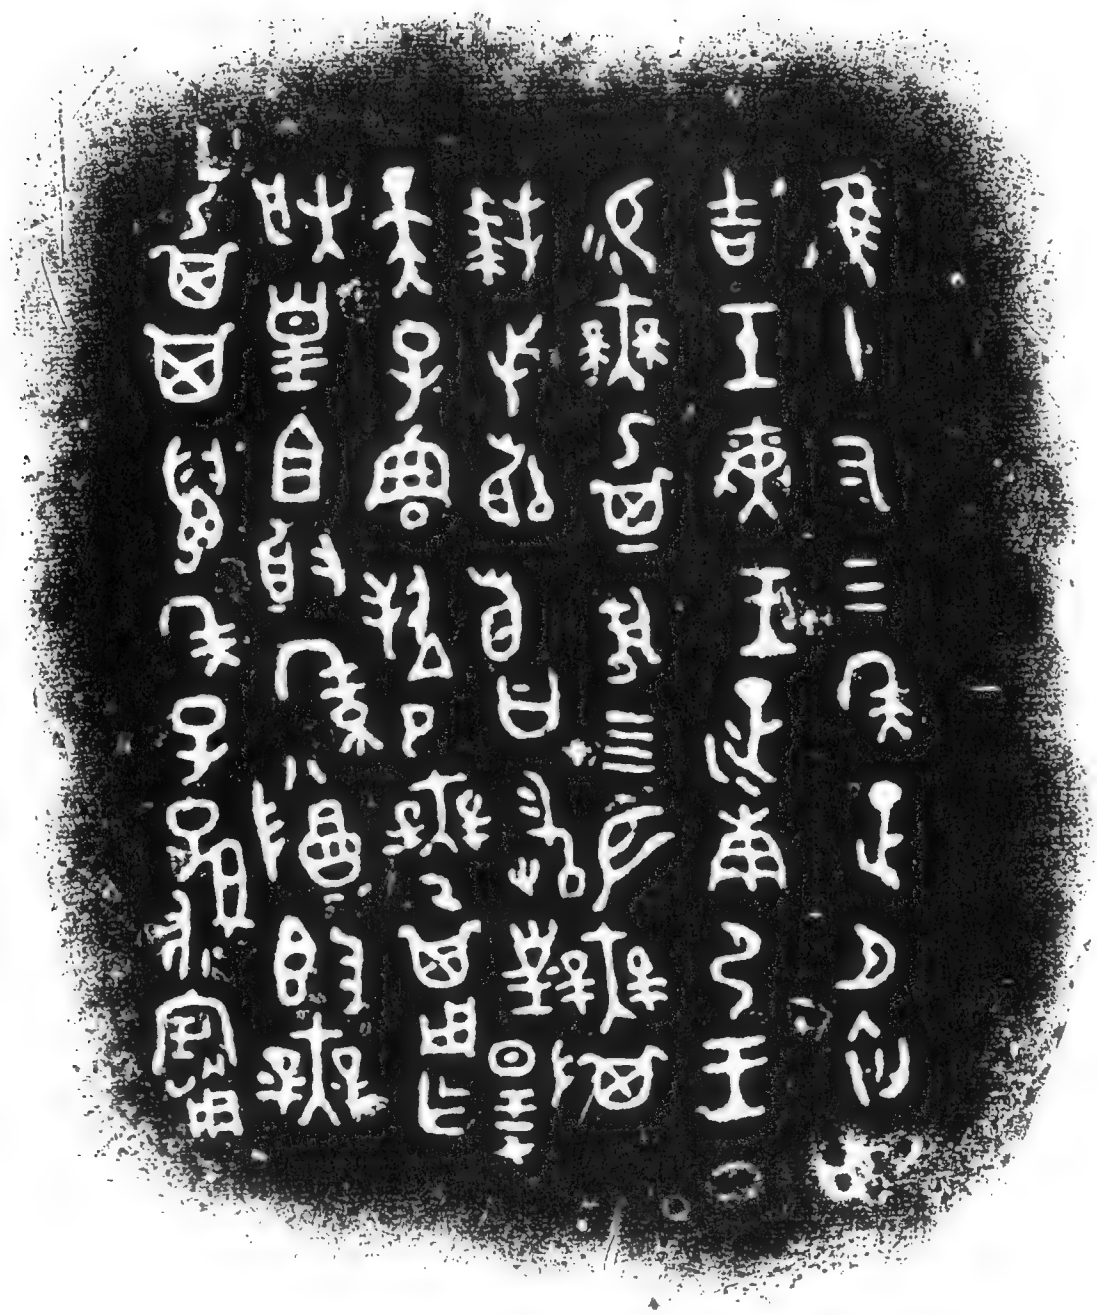 隹十又三年正月初
吉壬寅王征南尸王
易無㠱馬四匹無㠱
拜手𩒨首曰敢對揚
天子魯休令無㠱用乍
朕皇且釐季𨤲𣪘無
㠱其萬年子孫永寶用